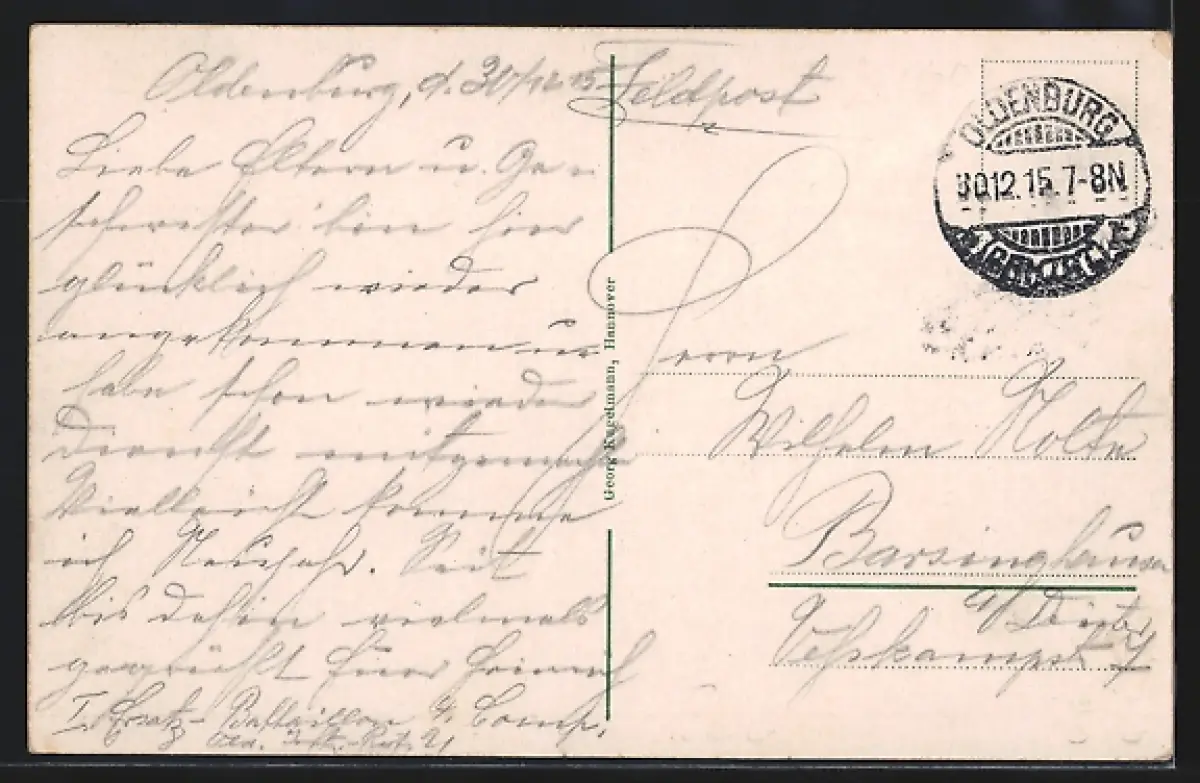 Oldenburg, d. 30/12 15
Liebe Eltern u. Ge-
schwister bin hier
glücklich wieder
angekommen u
habe schon wieder
Dienst mitgemacht
Vielleicht komme
ich Neujahr. Seit
bis dahin vielmals
gegrüßt Euer Heinrich
I. Ersatz-Battaillon 4. Comp.
Inft. Rgt. 91
Georg Kugelmann, Hannover
Feldpost
OLDENBURG
30.12.15.7-8N
(GRHZGT.)
Herrn
Wilhelm Nolte
Barsinghausen
a/ Deister